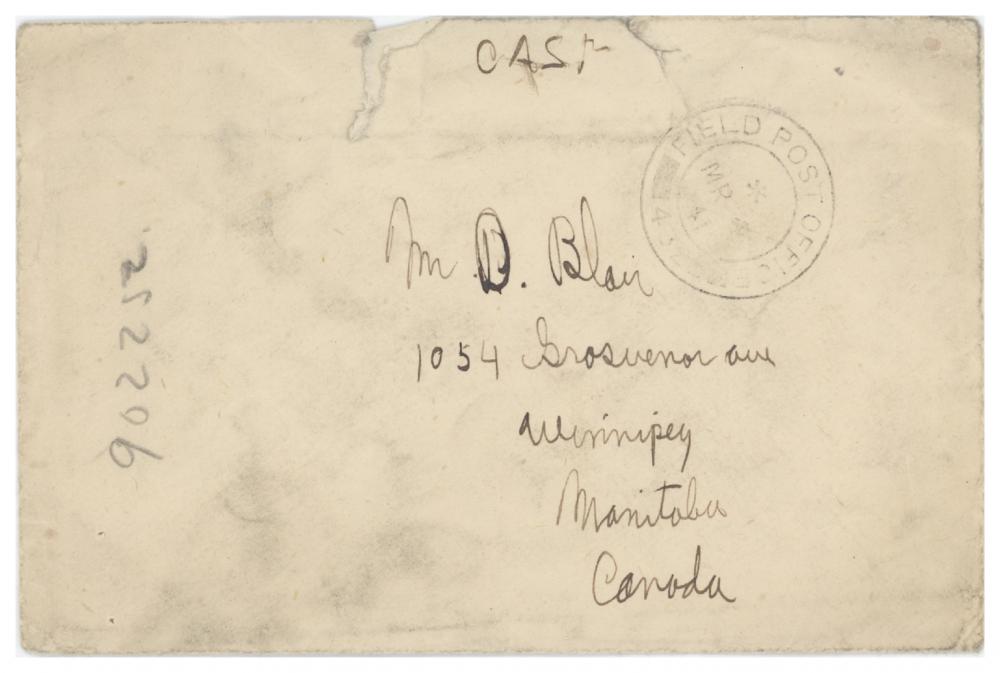 CASF
FIELD POST OFFICE
MR
Mr D. Blair
1054 Grosvenor ave
Winnipeg
Manitoba
Canada
902252